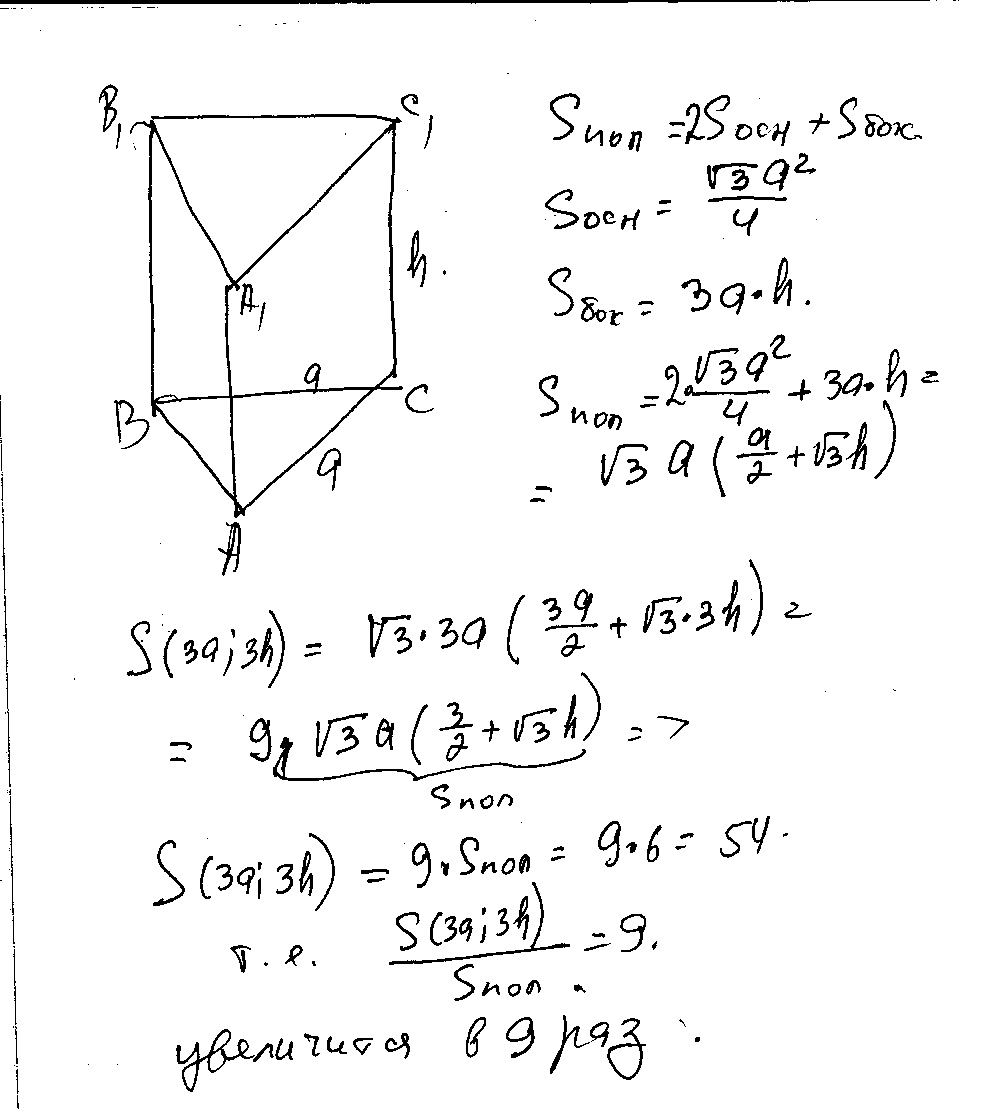 B₁ C₁
A₁
h.
a
B C
a
A
Sпоп = 2Sосн + Sбок.
Sосн = √3a²/4
Sбок = 3a·h.
Sпоп = 2·√3a²/4 + 3a·h =
= √3 a (a/2 + √3h)
S(3a; 3h) = √3·3a (3a/2 + √3·3h) =
= 9· √3 a (3/2 + √3h) =>
Sпоп
S(3a; 3h) = 9·Sпоп = 9·6 = 54.
т.е. S(3a; 3h)/Sпоп = 9.
увеличится в 9 раз.